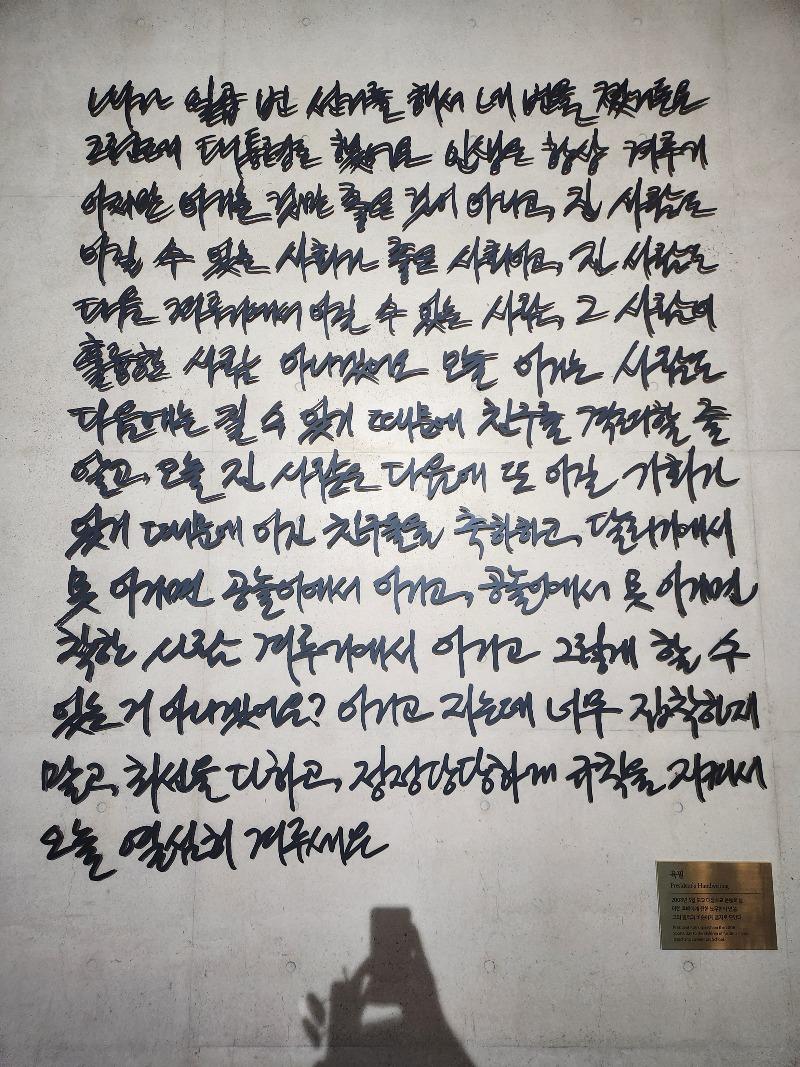 내가 일곱 번 선거를 해서 네 번을 졌거든요
그런데 대통령을 했어요 인생은 항상 겨루기
이지만 이기는 것만 좋은 것이 아니고, 진 사람도
이길 수 있는 사회가 좋은 사회이고, 진 사람도
다음 겨루기에서 이길 수 있는 사람, 그 사람이
훌륭한 사람 아니겠어요 오늘 이기는 사람도
다음에는 질 수 있기 때문에 친구를 격려할 줄
알고, 오늘 진 사람은 다음에 또 이길 기회가
있기 때문에 이긴 친구들을 축하하고, 달리기에서
못 이기면 공놀이에서 이기고, 공놀이에서 못 이기면
착한 사람 겨루기에서 이기고 그렇게 할 수
있는 거 아니겠어요? 이기고 지는데 너무 집착하지
말고, 최선을 다하고, 정정당당하게 규칙을 지켜서
오늘 열심히 겨루세요
육필
President's Handwriting